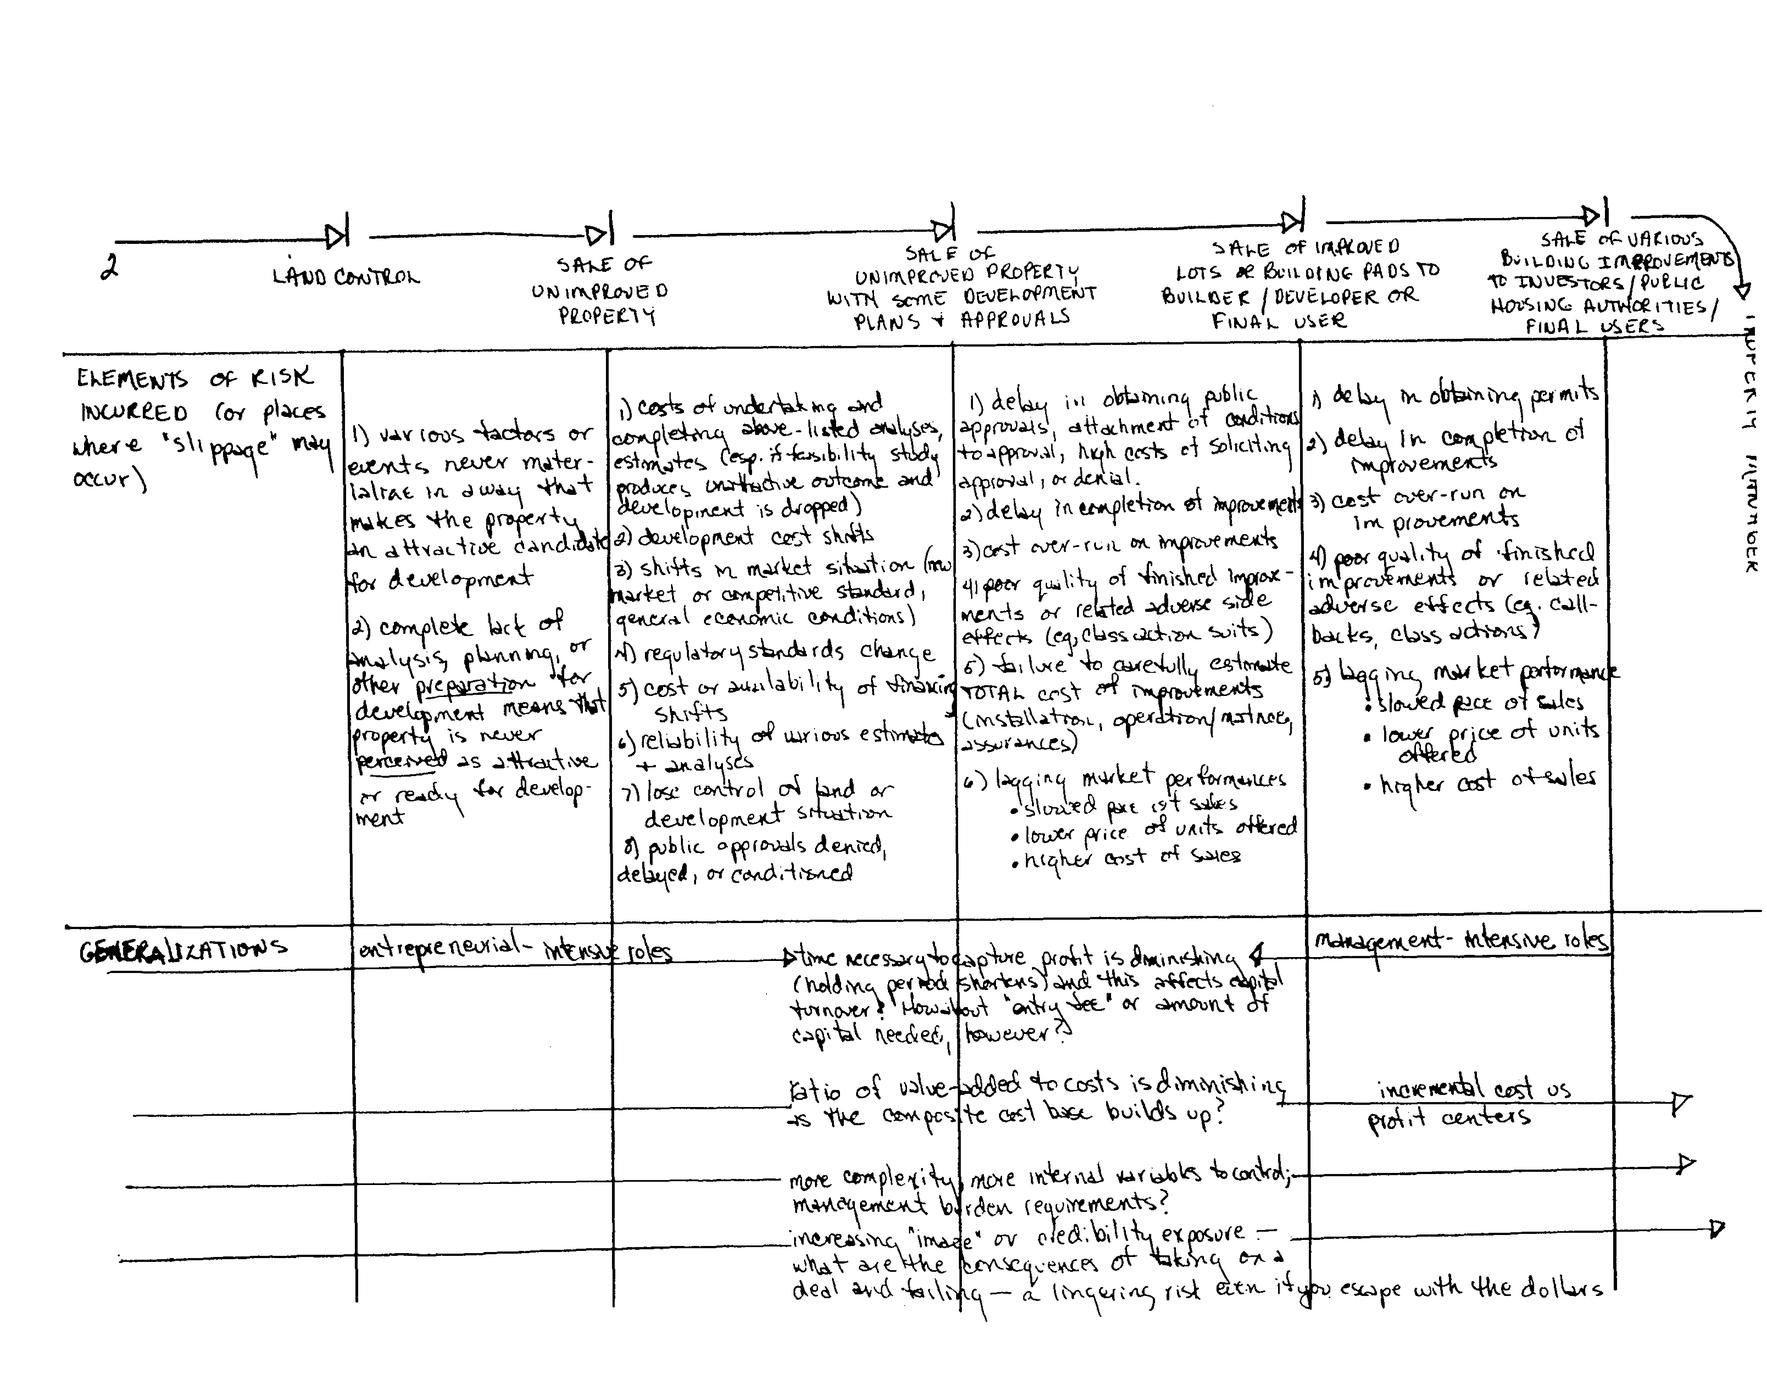 2
LAND CONTROL
SALE OF
UNIMPROVED
PROPERTY
SALE OF
UNIMPROVED PROPERTY
WITH SOME DEVELOPMENT
PLANS + APPROVALS
SALE OF IMPROVED
LOTS OR BUILDING PADS TO
BUILDER / DEVELOPER OR
FINAL USER
SALE OF VARIOUS
BUILDING IMPROVEMENTS
TO INVESTORS/PUBLIC
HOUSING AUTHORITIES/
FINAL USERS
MANAGER
ELEMENTS OF RISK
INCURRED (or places
where "slippage" may
occur)
1) various factors or
events never mater-
ialize in a way that
makes the property
an attractive candidate
for development
2) complete lack of
analysis, planning, or
other preparation for
development means that
property is never
perceived as attractive
or ready for develop-
ment
1) costs of undertaking and
completing above-listed analyses,
estimates (esp. if feasibility study
produces unattractive outcome and
development is dropped)
2) development cost shifts
3) shifts in market situation (new
market or competitive standard,
general economic conditions)
4) regulatory standards change
5) cost or availability of financing
shifts
6) reliability of various estimates
+ analyses
7) lose control of land or
development situation
8) public approvals denied,
delayed, or conditioned
1) delay in obtaining public
approvals, attachment of conditions
to approval, high costs of soliciting
approval, or denial.
2) delay in completion of improvements
3) cost over-run on improvements
4) poor quality of finished improve-
ments or related adverse side
effects (eg, class action suits)
5) failure to carefully estimate
TOTAL cost of improvements
(installation, operation/matnce,
assurances)
6) lagging market performances
• slowed pace of sales
• lower price of units offered
• higher cost of sales
1) delay in obtaining permits
2) delay in completion of
improvements
3) cost over-run on
improvements
4) poor quality of finished
improvements or related
adverse effects (eg. call-
backs, class actions)
5) lagging market performance
• slowed pace of sales
• lower price of units
offered
• higher cost of sales
GENERALIZATIONS
entrepreneurial-intensive roles
time necessary to capture profit is diminishing
(holding period shortens) and this affects capital
turnover? How about "entry fee" or amount of
capital needed, however?
management-intensive roles
ratio of value-added to costs is diminishing
as the composite cost base builds up?
incremental cost vs
profit centers
more complexity, more internal variables to control;
management burden requirements?
increasing "image" or credibility exposure —
what are the consequences of taking on a
deal and failing — a lingering risk even if you escape with the dollars